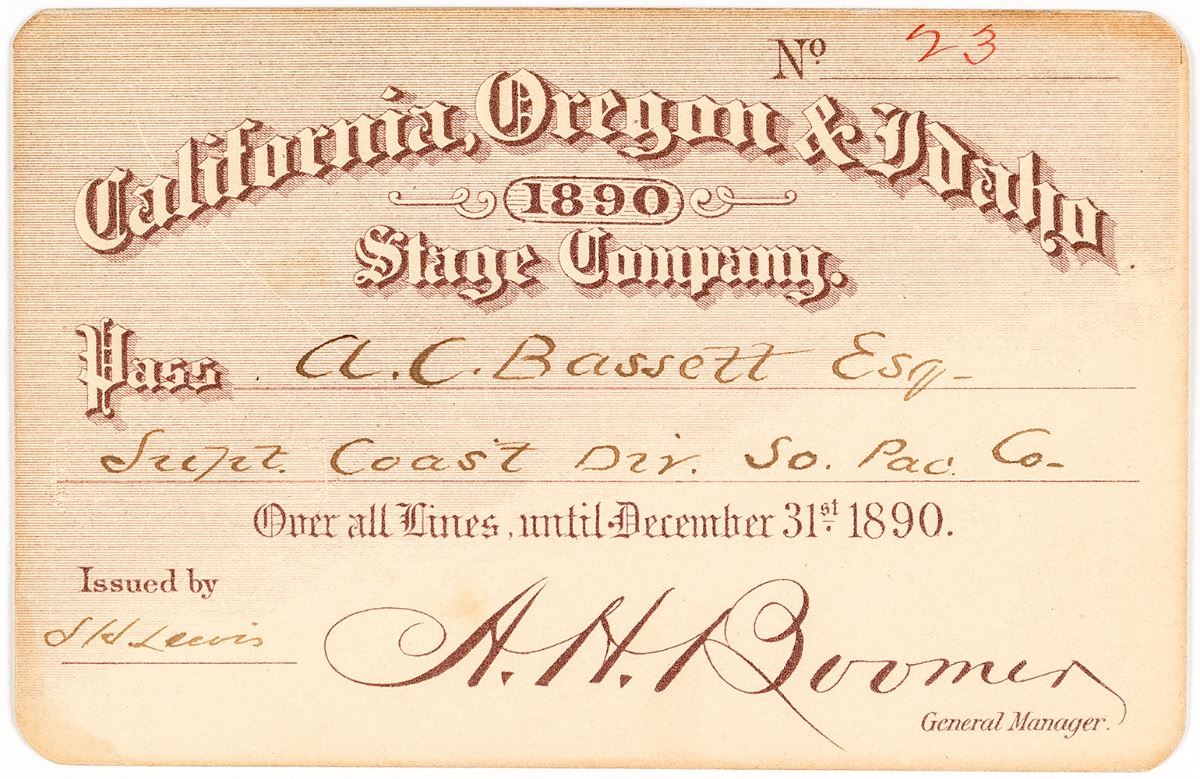 Nº 23
California, Oregon & Idaho
1890
Stage Company.
Pass A. C. Bassett Esq
Supt. Coast Div. So. Pac. Co.
Over all Lines, until 31st 1890.
Issued by
S H Lewis
A. H. Boomer
General Manager.